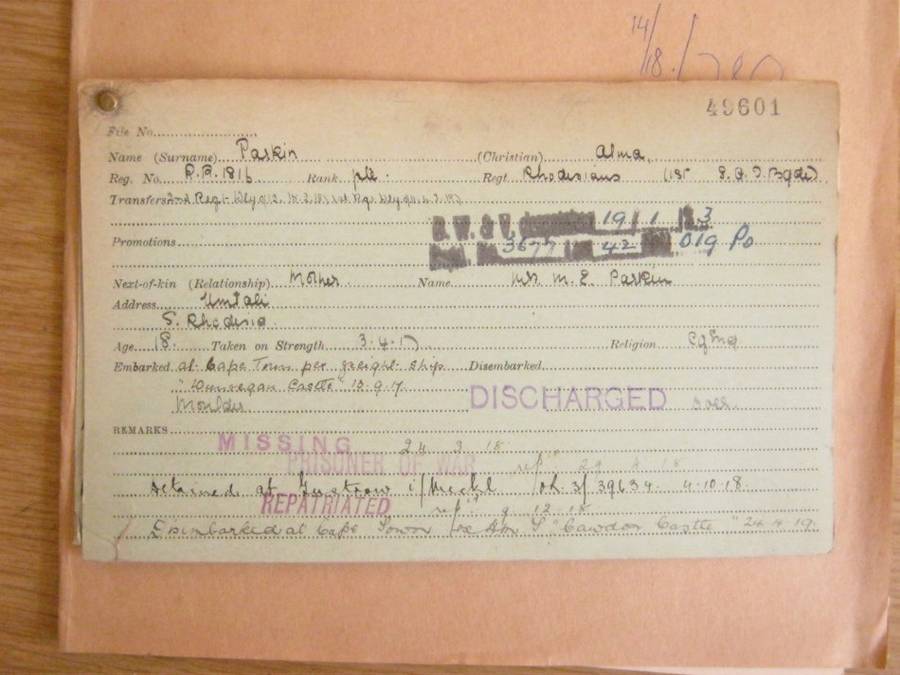 14/18./
49601
File No.
Name (Surname) Parkin (Christian) Alma.
Reg. No. R.R. 1816 Rank pte. Regt. Rhodesians (1st S.A.I. Bgde)
Transfers 2nd Regt
Promotions 19 1 3
3677 42 019 Po
Next-of-kin (Relationship) Mother Name Mrs. M. E. Parkin
Address Umtali
S. Rhodesia.
Age 18. Taken on Strength 3.4.17 Religion C of Eng
Embarked at Cape Town per freight ship Disembarked
"Dunvegan Castle" 13.9.17.
Moulder DISCHARGED
REMARKS
MISSING 24 3 18
PRISONER OF WAR rep
detained at Gustrow i/Meckl 39634 4.10.18.
REPATRIATED rep 9 12 18
Disembarked at Cape Town ex "Cawdor Castle" 24.4.19.